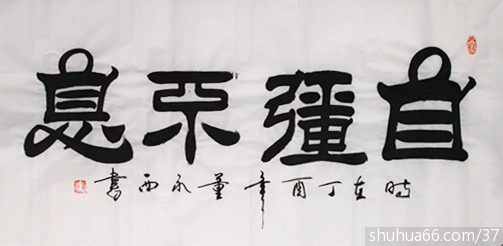 自彊不息
時在丁酉年董永西書
shuhua66.com/37